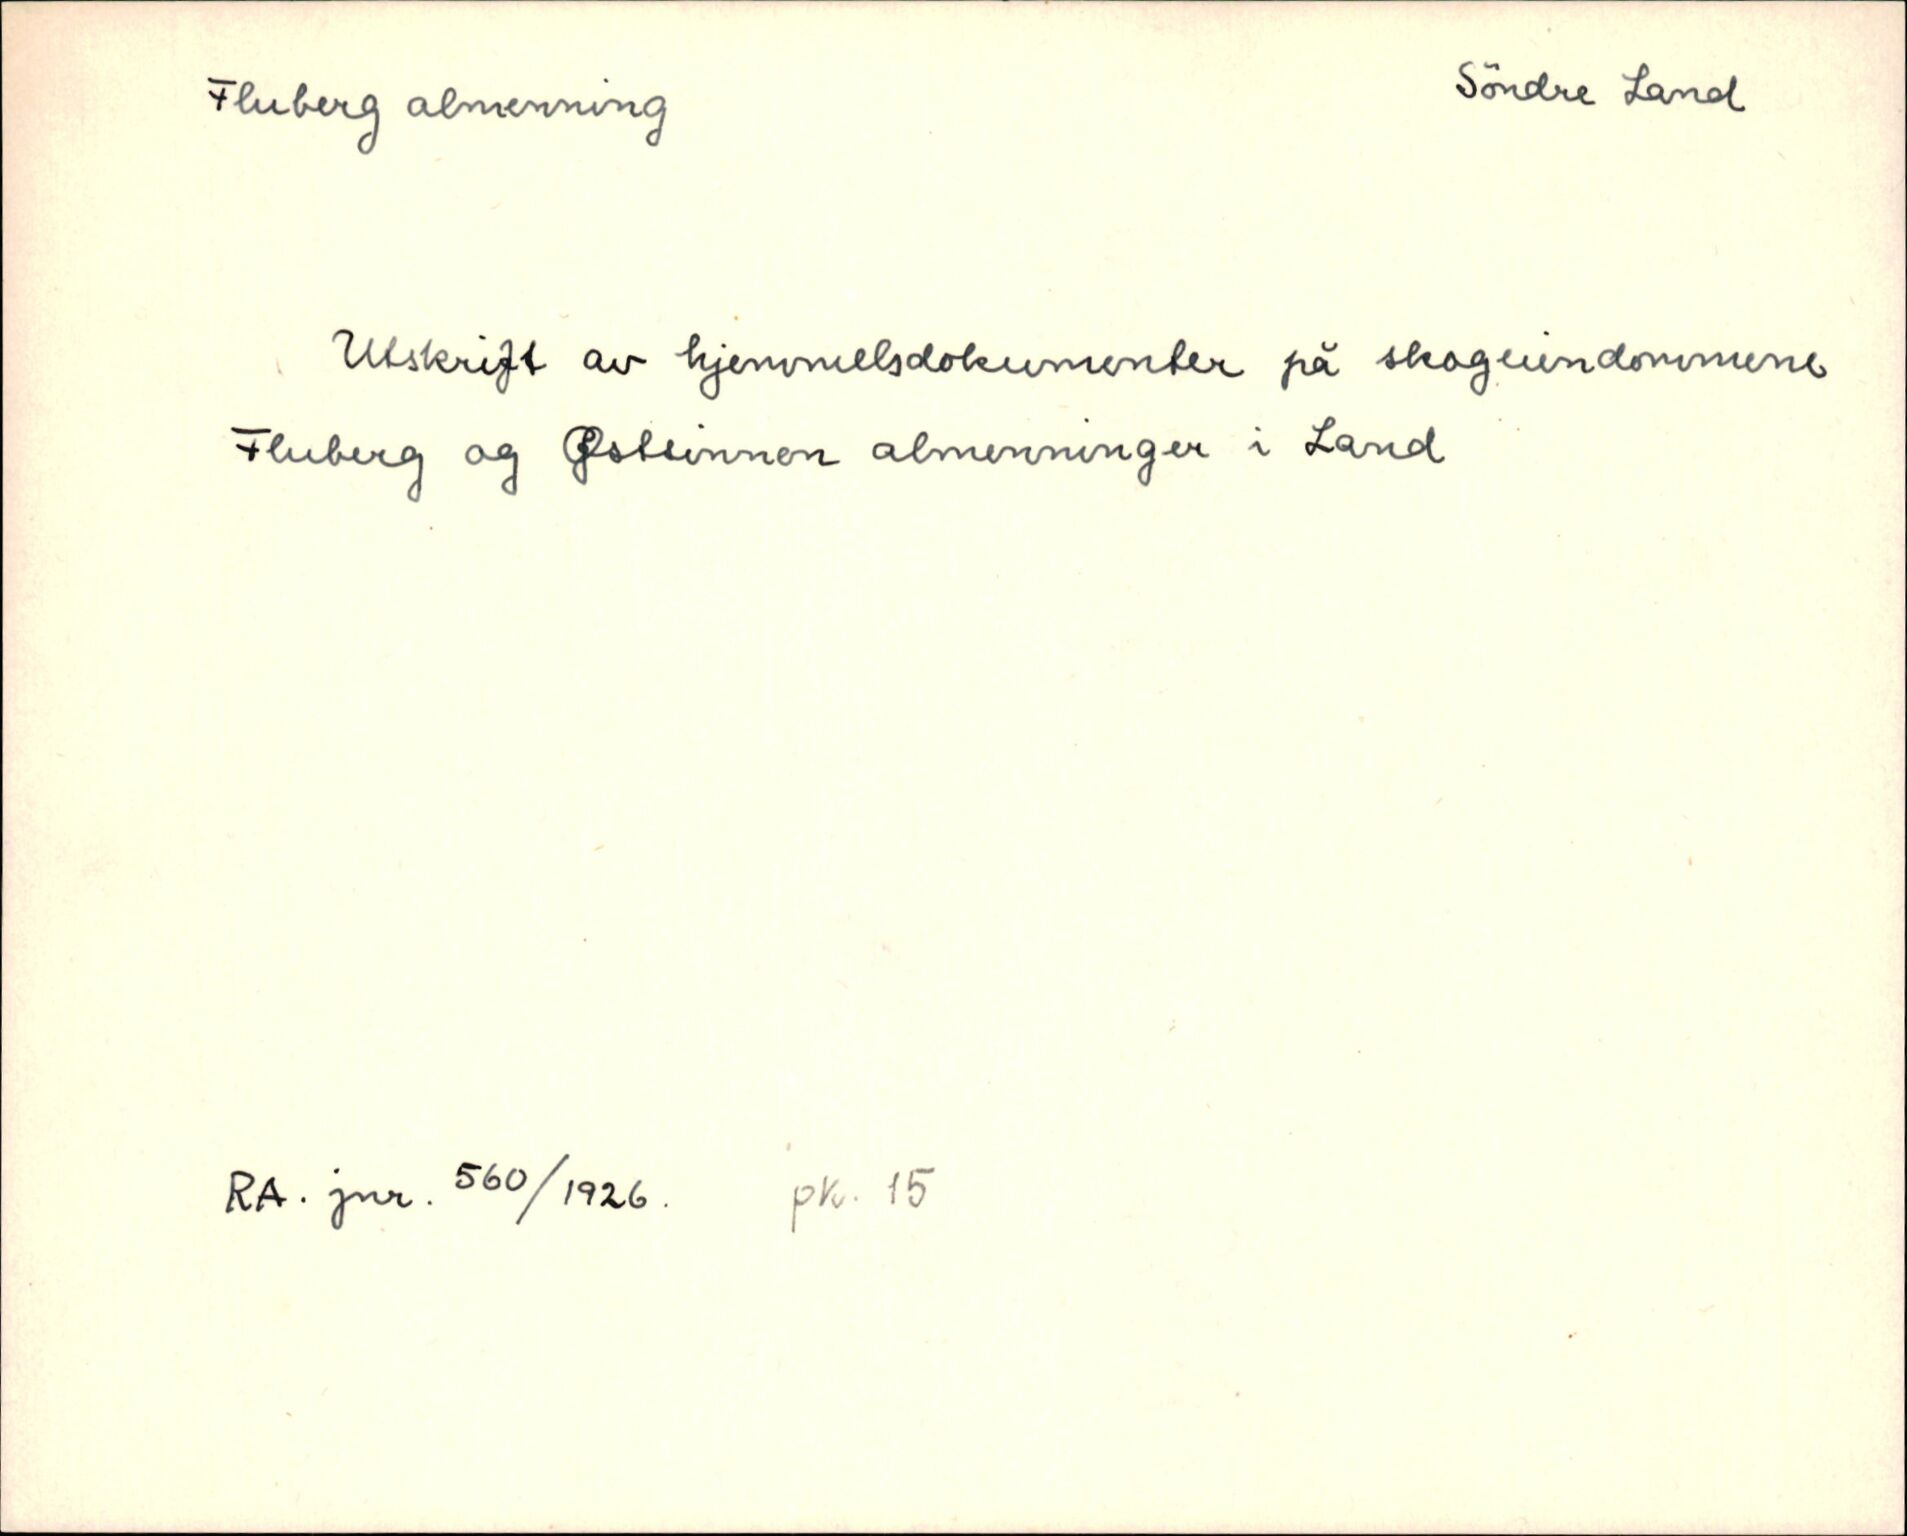 Fluberg almenning
Söndre Land
Utskrift av hjemmelsdokumenter på skogeiendommene
Fluberg og Østsinnen almenninger i Land
RA. jnr. 560/1926.
pk. 15